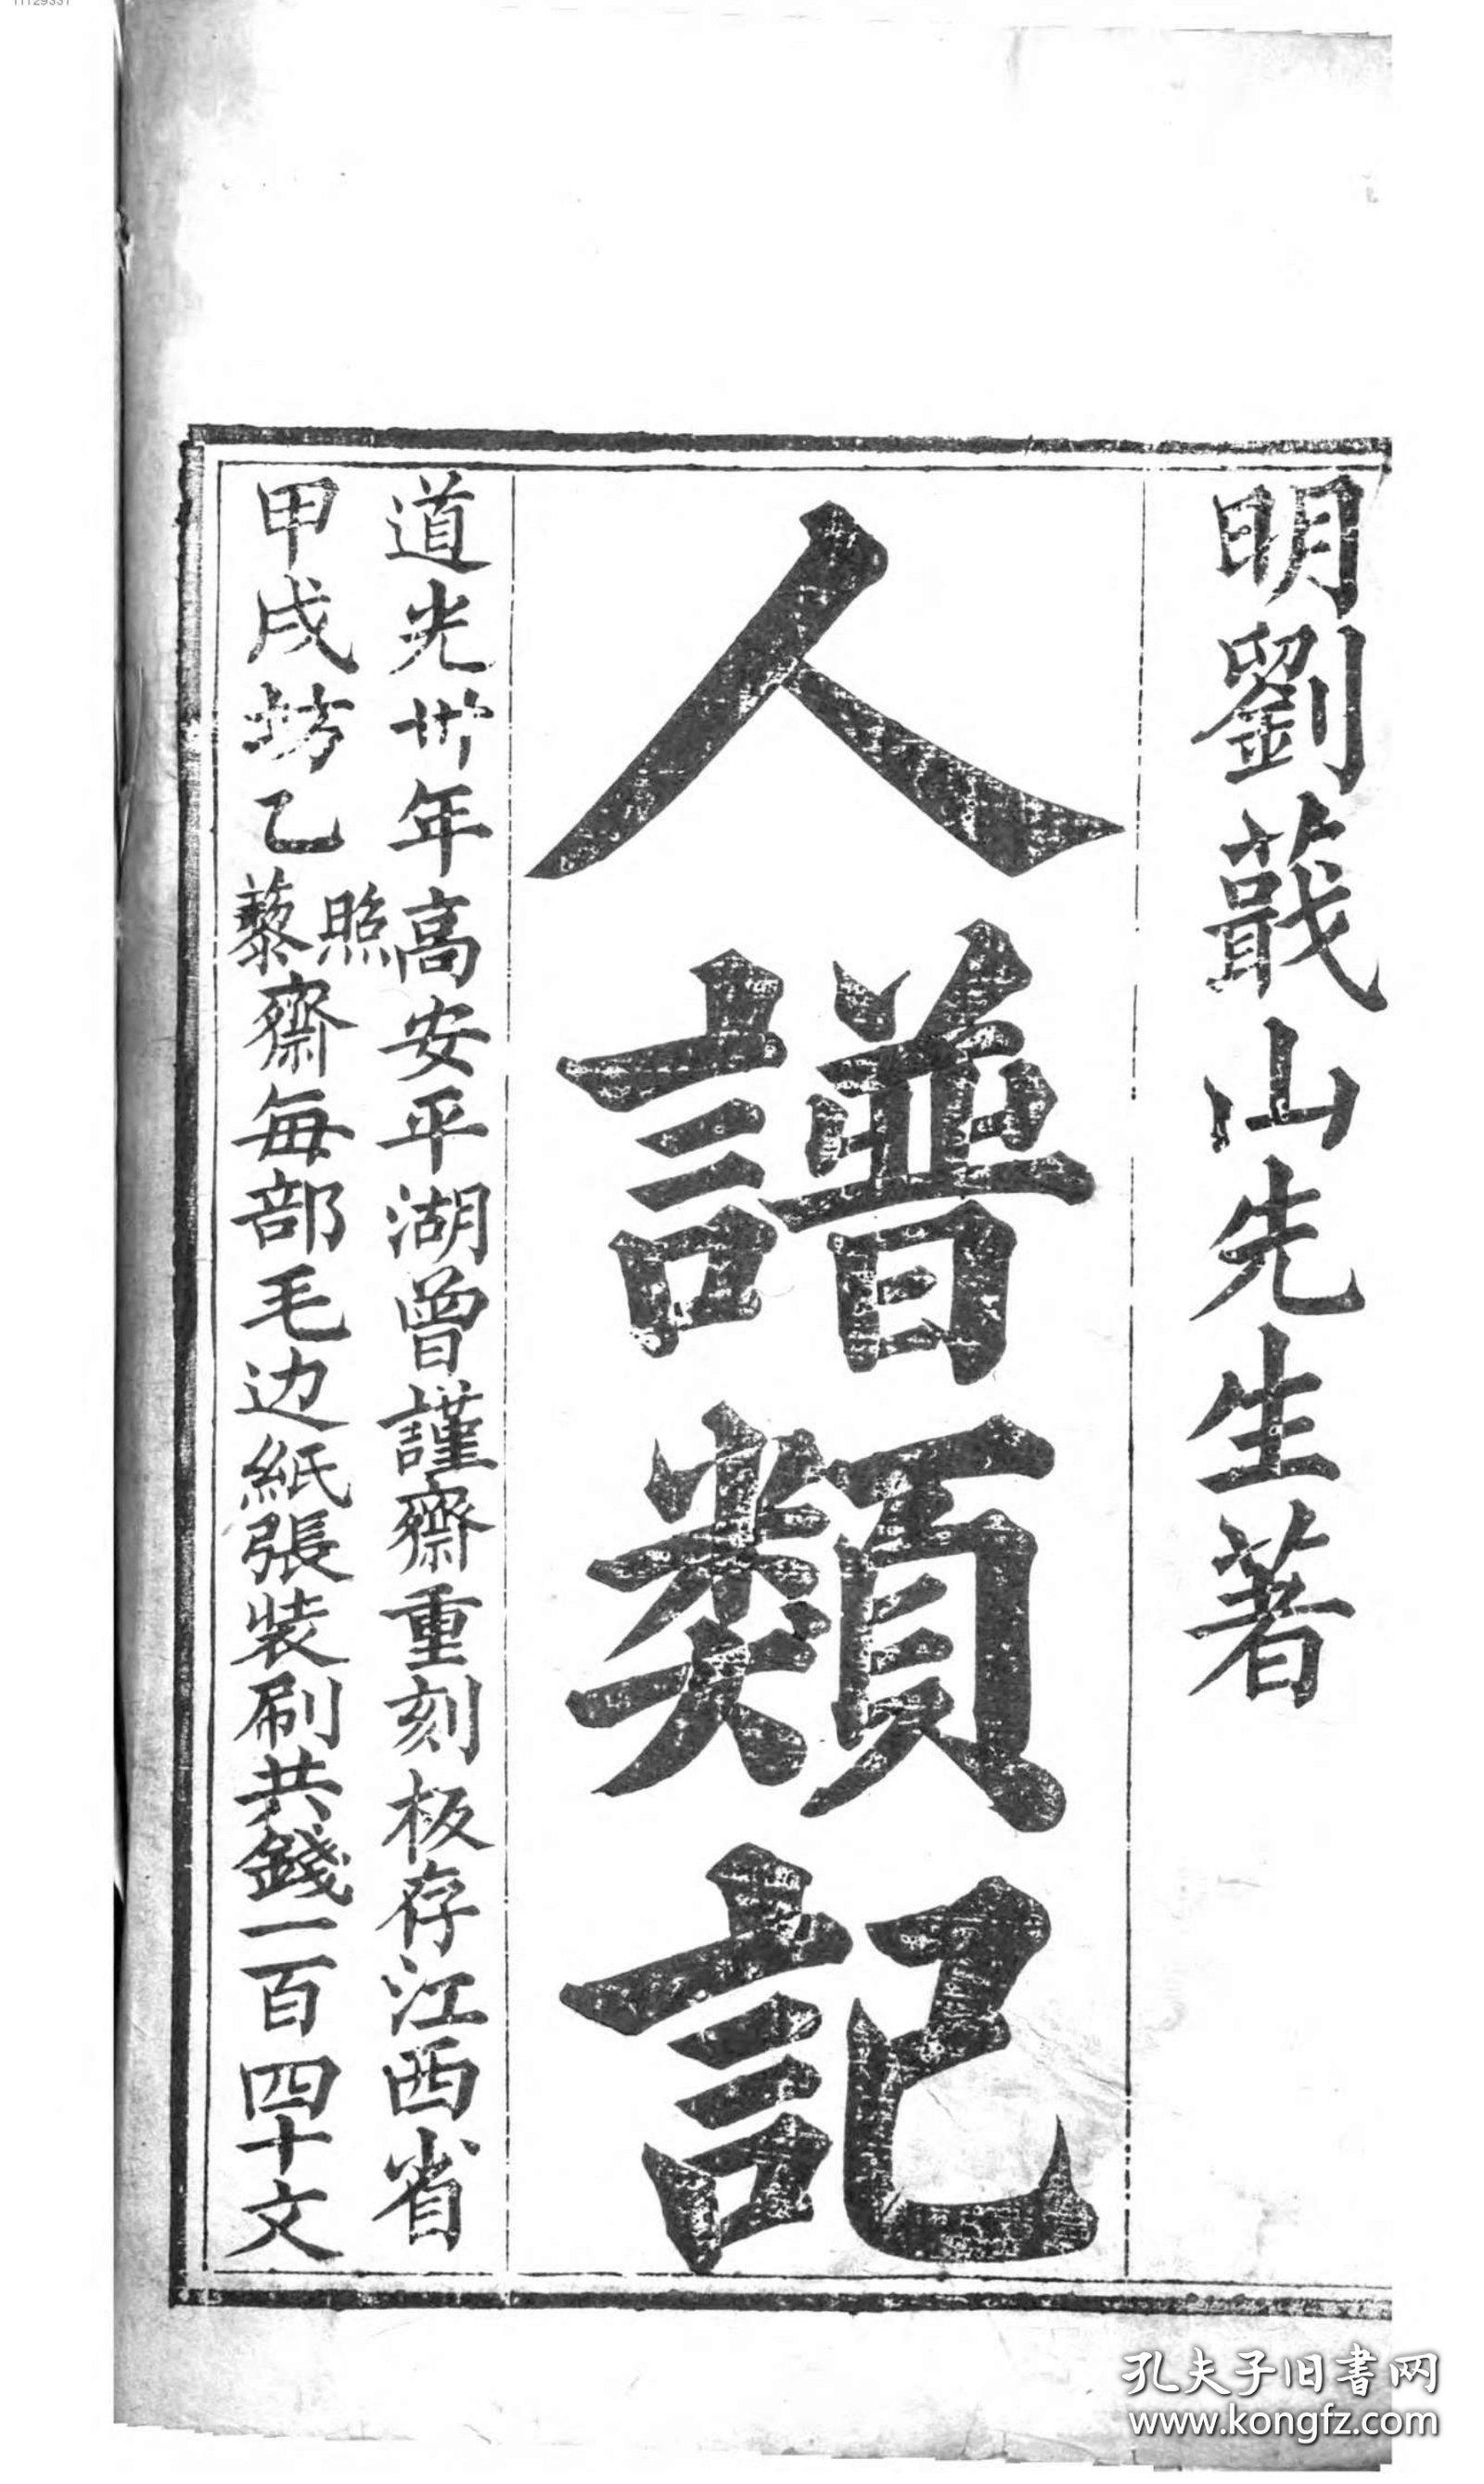 明劉蕺山先生著
人譜類記
道光卅年高安平湖曾謹齋重刻板存江西省
甲戌坊乙照藜齋每部毛边紙張裝刷共錢一百四十文
孔夫子旧書网
www.kongfz.com